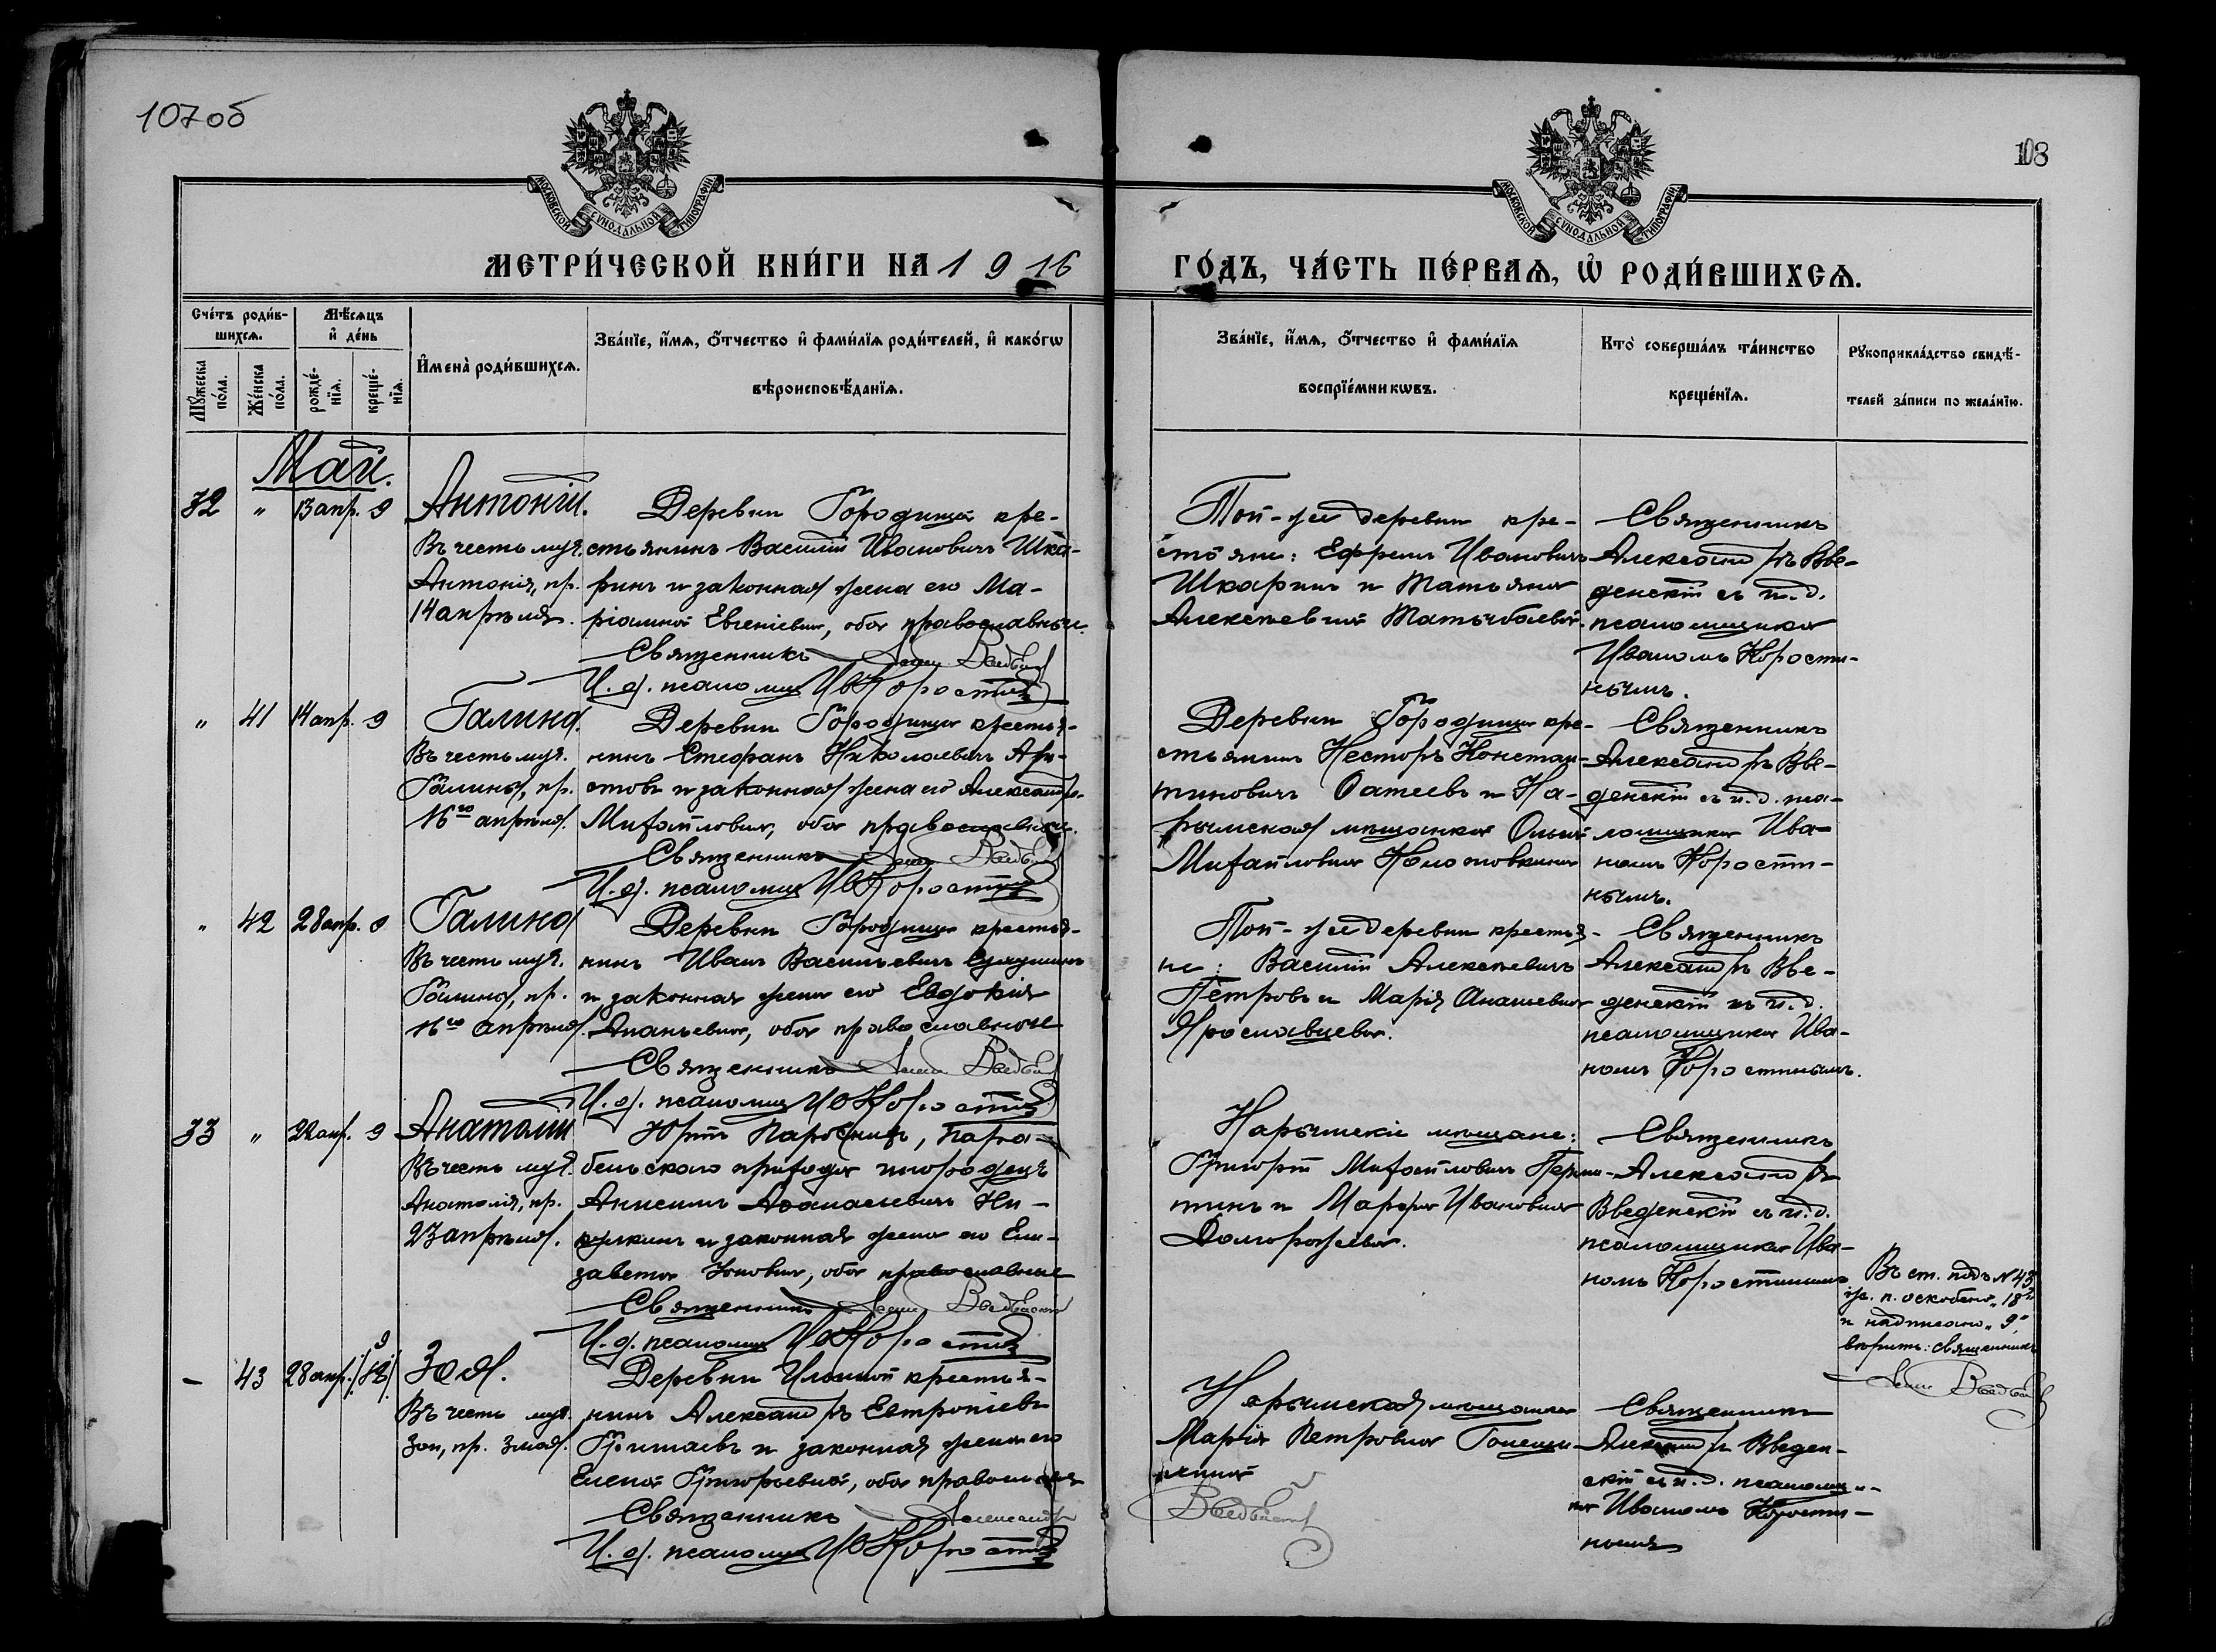 107об
108
МОСКОВСКОЙ СУНОДАЛЬНОЙ ТИПОГРАФІИ
МОСКОВСКОЙ СУНОДАЛЬНОЙ ТИПОГРАФІИ
МЕТРИ́ЧЕСКОЙ КНИ́ГИ НА 1916
ГО́ДЪ, ЧА́СТЬ ПЕ́РВАѦ, Ѽ РОДИ́ВШИХСѦ.
Сче́тъ роди́в-
шихсѧ.
Мѣ́сѧцъ
и҆ де́нь
Мꙋ́жеска
по́ла.
Же́нска
по́ла.
рожде́-
нїѧ.
креще́-
нїѧ.
И҆мена̀ роди́вшихсѧ.
Зва́нїе, и҆́мѧ, ѻ҆́тчество и҆ фами́лїѧ роди́телей, и҆ како́гѡ
вѣроисповѣ́данїѧ.
Зва́нїе, и҆́мѧ, ѻ҆́тчество и҆ фами́лїѧ
воспрїе́мникѡвъ.
Кто̀ соверша́лъ та́инство
креще́нїѧ.
Рꙋкоприкла́дство свидѣ́-
телей за́писи по жела́нїю.
Май.
32 " 13 апр. 9 Антоній.
Въ честь муч.
Антонія, пр.
14 апрѣля.
Деревни Городища кре-
стьянинъ Василій Ивановичъ Шка-
ринъ и законная жена его Ма-
ріамна Евгеніевна, оба православные.
Священникъ
И. д. псаломщ. Ив. Коростин
Той-же деревни кре-
стьяне: Ефремъ Ивановичъ
Шкаринъ и Татьяна
Алексѣевна
Священникъ
Александръ Вве-
денскій съ и. д.
псаломщика
Иваномъ Корости-
нымъ.
" 41 14 апр. 9 Галина.
Въ честь муч.
Галины, пр.
16го апрѣля.
Деревни Городища крестья-
нинъ Стефанъ Николаевичъ Ари-
стовъ и законная жена его Александра
Михайловна, оба православные.
Священникъ
И. д. псаломщ. Ив. Коростин
Деревни Городища кре-
стьянинъ Несторъ Констан-
тиновичъ и На-
рымская мѣщанка Ольга
Михайловна
Священникъ
Александръ Вве-
денскій съ и. д. пса-
ломщика Ива-
номъ Корости-
нымъ.
" 42 28 апр. 9 Галина
Въ честь муч.
Галины, пр.
16го апрѣля.
Деревни Городища крестья-
нинъ Иванъ Васильевичъ
и законная жена его Евдокія
Ананьевна, оба православные
Священникъ
И. д. псаломщ. Ив. Коростин
Той-же деревни крестья-
не: Василій Алексѣевичъ
Петровъ и Марія Ананьевна
Ярославцева.
Священникъ
Александръ Вве-
денскій съ и. д.
псаломщика Ива-
номъ Коростинымъ.
33 " 22 апр. 9 Анатолій
Въ честь муч.
Анатолія, пр.
23 апрѣля.
Юртъ , Пара-
бельскаго прихода инородецъ
Анисимъ Аѳанасьевичъ
и законная жена его Ели-
завета , оба православные
Священникъ
И. д. псаломщ. Ив. Коростин
Нарымскіе мѣщане:
Григорій Михайловичъ
и Марѳа Ивановна
Священникъ
Александръ
Введенскій съ и. д.
псаломщика Ива-
номъ Коростинымъ
Въ ст. подъ № 43
ж. п. оскоблено "18"
и надписано "9"
вѣрить: священникъ
- 43 28 апр. 9 Зоя.
Въ честь муч.
Зои, пр. 2 мая.
Деревни крестья-
нинъ Александръ Евтропіевъ
и законная жена его
Елена Григорьевна, оба православные
Священникъ Александръ
Введенскій
И. д. псаломщ. Ив. Коростин
Нарымская мѣщанка
Марія Петровна
Священникъ
Александръ Введен-
скій съ и. д. псаломщи-
ка Иваномъ Корости-
нымъ